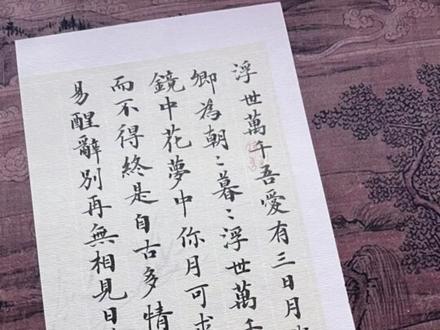 浮世萬千吾愛有三日月
卿為朝〻暮〻浮世萬千
鏡中花夢中你月可求
而不得終是自古多情
易醒辭別再無相見日